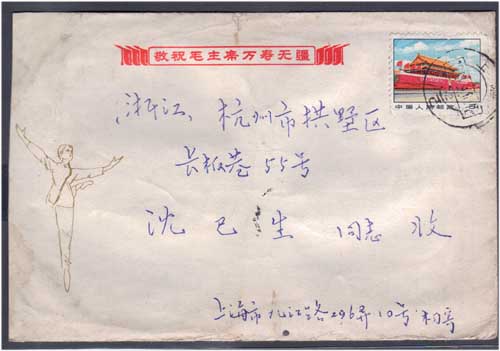 敬祝毛主席万寿无疆
中国人民邮政
浙江 杭州市拱墅区
长板巷55号
沈巳生 同志 收
上海市九江路296弄10号